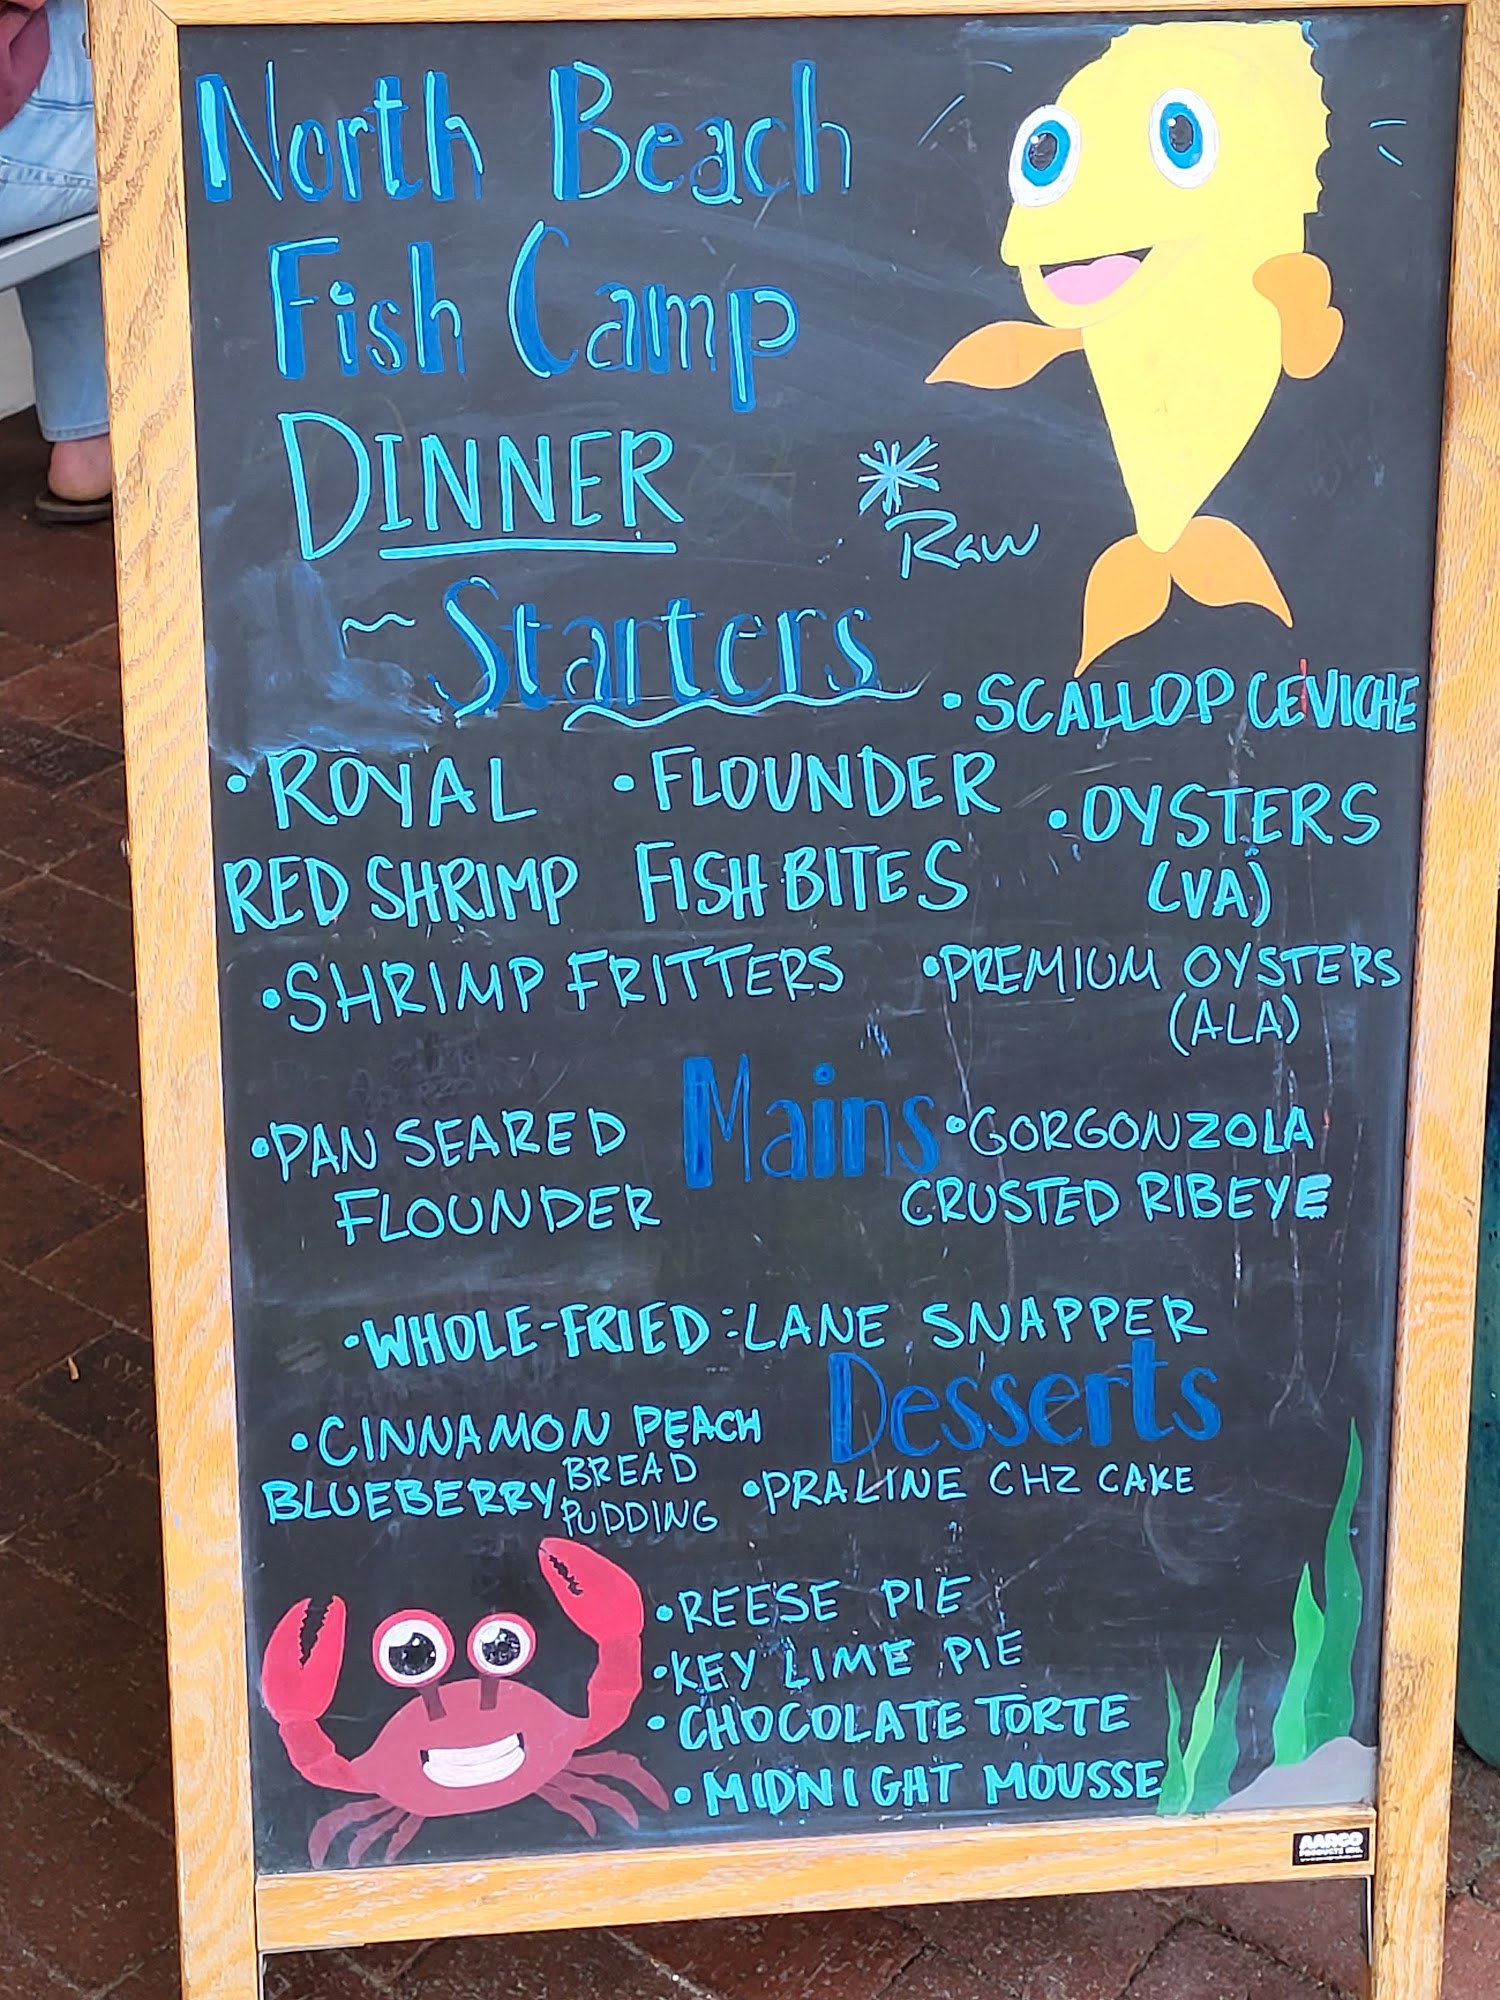 North Beach
Fish Camp
DINNER
Raw
~ Starters
• SCALLOP CEVICHE
• ROYAL
RED SHRIMP
• FLOUNDER
FISH BITES
• OYSTERS
(VA)
• SHRIMP FRITTERS
• PREMIUM OYSTERS
(ALA)
Mains
• PAN SEARED
FLOUNDER
• GORGONZOLA
CRUSTED RIBEYE
• WHOLE-FRIED: LANE SNAPPER
Desserts
• CINNAMON PEACH
BLUEBERRY BREAD
PUDDING
• PRALINE CHZ CAKE
• REESE PIE
• KEY LIME PIE
• CHOCOLATE TORTE
• MIDNIGHT MOUSSE
AARCO
PRODUCTS INC.